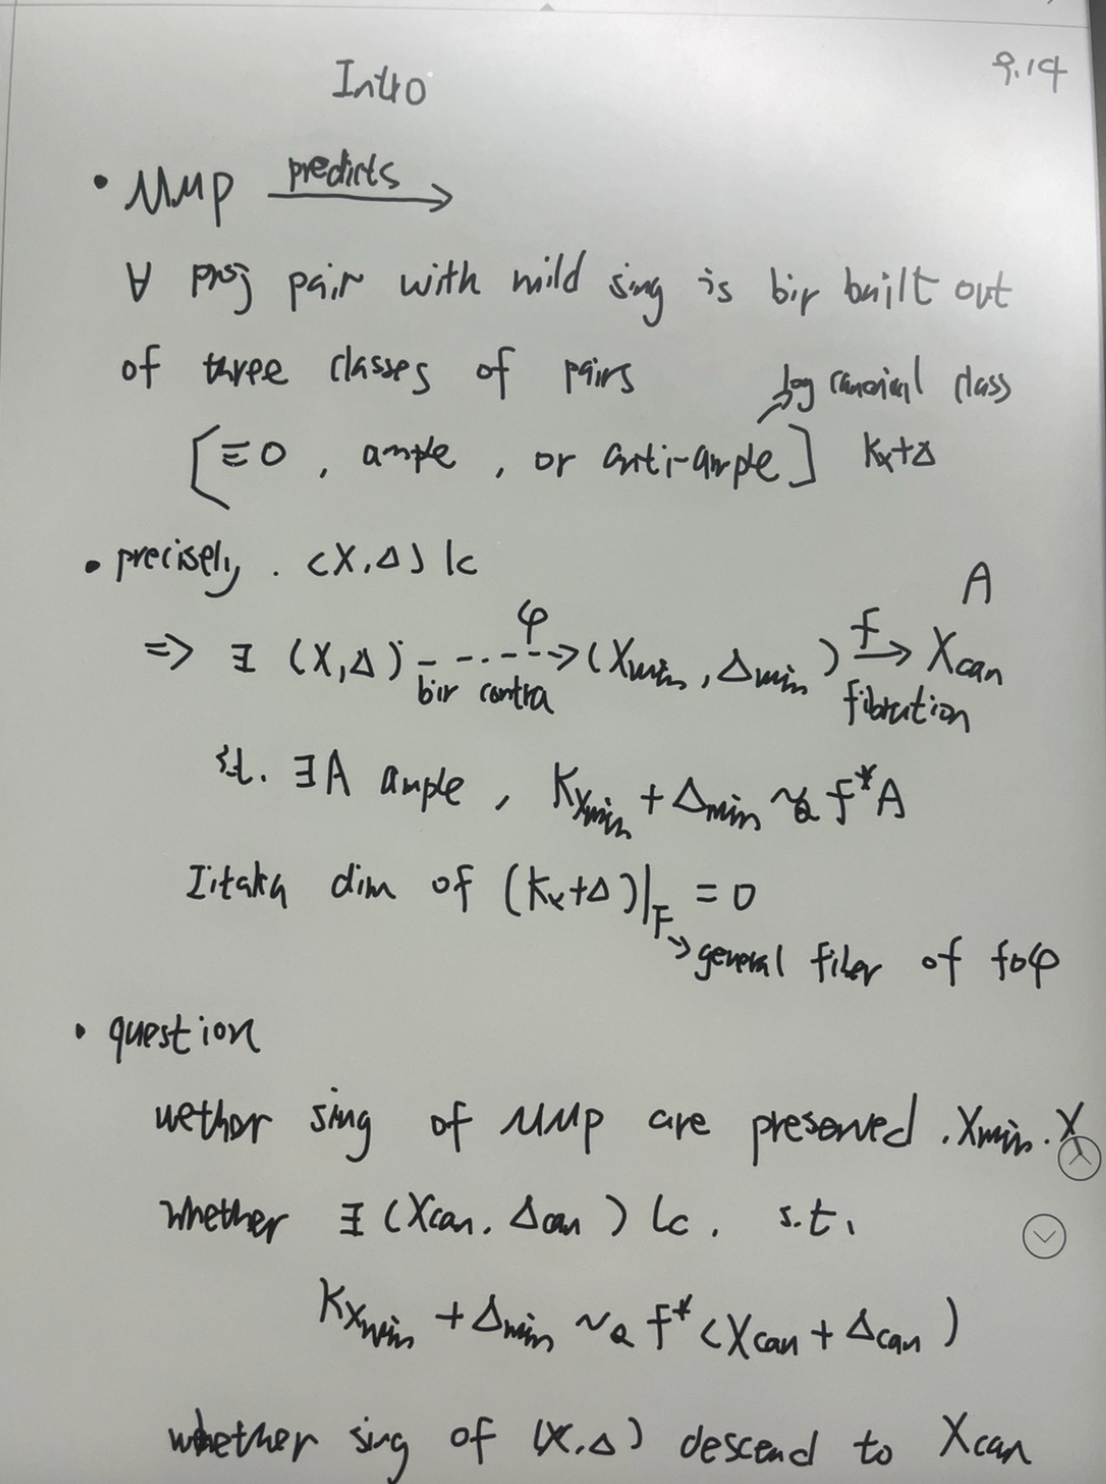 Intro
9.14
• MMP predicts →
∀ proj pair with mild sing is bir built out
of three classes of pairs
log canonical class
[≡0, ample, or anti-ample] Kx+Δ
• precisely. (X,Δ) lc
A
⇒ ∃ (X,Δ) --φ--> (Xmin, Δmin) f→ Xcan
bir contra fibration
s.t. ∃A ample, K_Xmin + Δmin ~Q f*A
Iitaka dim of (Kx+Δ)|F = 0
→ general fiber of f∘φ
• question
wether sing of MMP are preserved. Xmin. X
whether ∃ (Xcan, Δcan) lc, s.t.
K_Xmin + Δmin ~Q f*(Xcan + Δcan)
whether sing of (X,Δ) descend to Xcan